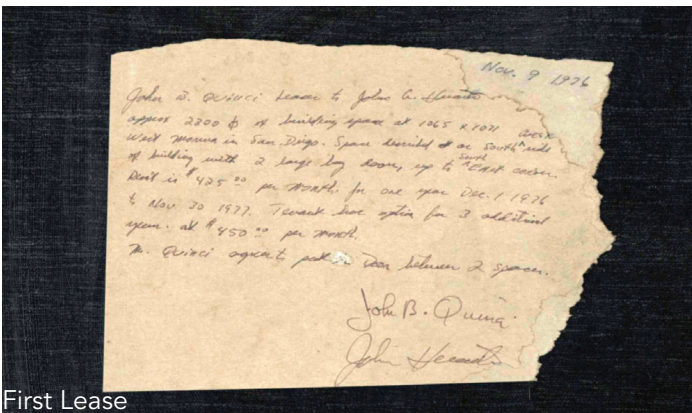 Nov. 9 1976
John B. Quinci Leases to John A.
approx 2200 of building space at 1065 x 7071 West
West Morena in San Diego. Space described as on South side
of building with 2 large bay doors, up to South East corner.
Rent is $425.00 per month. for one year Dec. 1 1976
to Nov 30 1977. Tenant has option for 3 additional
years. at $450.00 per month.
Mr. Quinci agrees to put door between 2 spaces.
John B. Quinci
John
First Lease